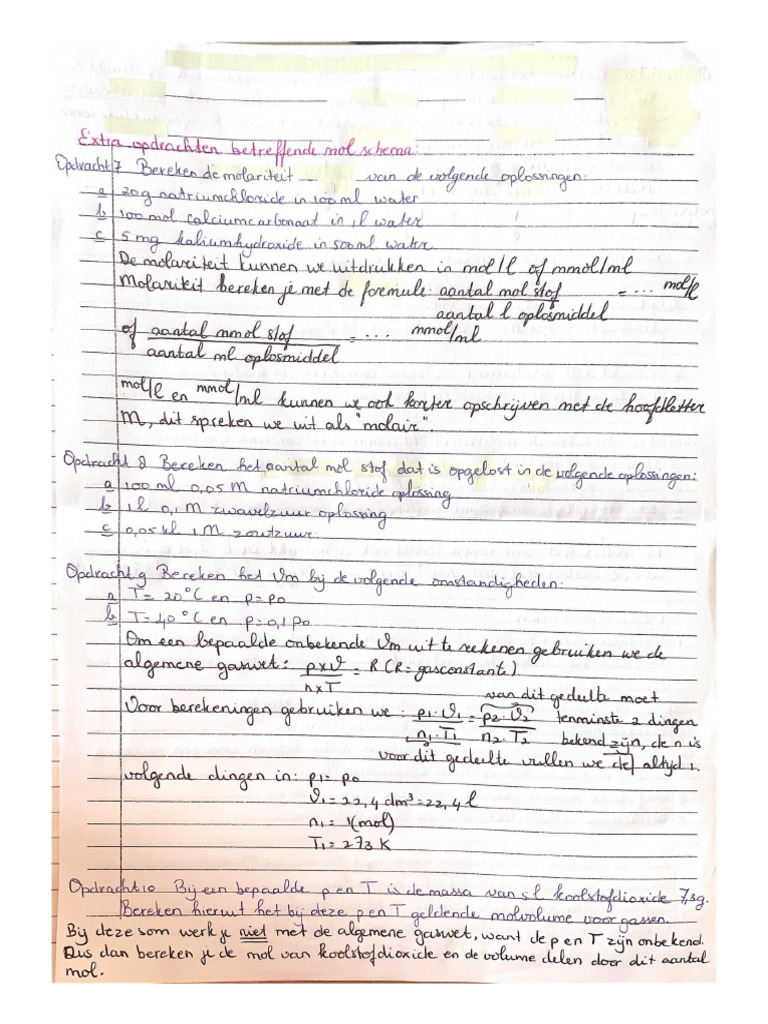 Extra opdrachten betreffende mol schema:
Opdracht 7 Bereken de molariteit van de volgende oplossingen:
a 20 g natriumchloride in 100 ml water
b 100 mol calciumcarbonaat in 1 l water
c 5 mg kaliumhydroxide in 500 ml water
De molariteit kunnen we uitdrukken in mol/l of mmol/ml
Molariteit bereken je met de formule: aantal mol stof = ... mol/l
aantal l oplosmiddel
of aantal mmol stof = ... mmol/ml
aantal ml oplosmiddel
mol/l en mmol/ml kunnen we ook korter opschrijven met de hoofdletter
M, dit spreken we uit als "molair".
Opdracht 8 Bereken het aantal mol stof dat is opgelost in de volgende oplossingen:
a 100 ml 0,05 M natriumchloride oplossing
b 1 l 0,1 M zwavelzuur oplossing
c 0,05 kl 1 M zoutzuur
Opdracht 9 Bereken het Vm bij de volgende omstandigheden:
a T = 20°C en p = p0
b T = 40°C en p = 0,1 p0
Om een bepaalde onbekende Vm uit te rekenen gebruiken we de
algemene gaswet: p x V = R (R = gasconstante)
n x T
van dit gedeelte moet
Voor berekeningen gebruiken we: p1 · V1 = p2 · V2 tenminste 2 dingen
n1 · T1 n2 · T2 bekend zijn, de n is
voor dit gedeelte vullen we de altijd 1.
volgende dingen in: p1 = p0
V1 = 22,4 dm³ = 22,4 l
n1 = 1 (mol)
T1 = 273 K
Opdracht 10 Bij een bepaalde p en T is de massa van 5 l koolstofdioxide 7,3 g.
Bereken hieruit het bij deze p en T geldende molvolume voor gassen.
Bij deze som werk je niet met de algemene gaswet, want de p en T zijn onbekend.
Dus dan bereken je de mol van koolstofdioxide en de volume delen door dit aantal
mol.